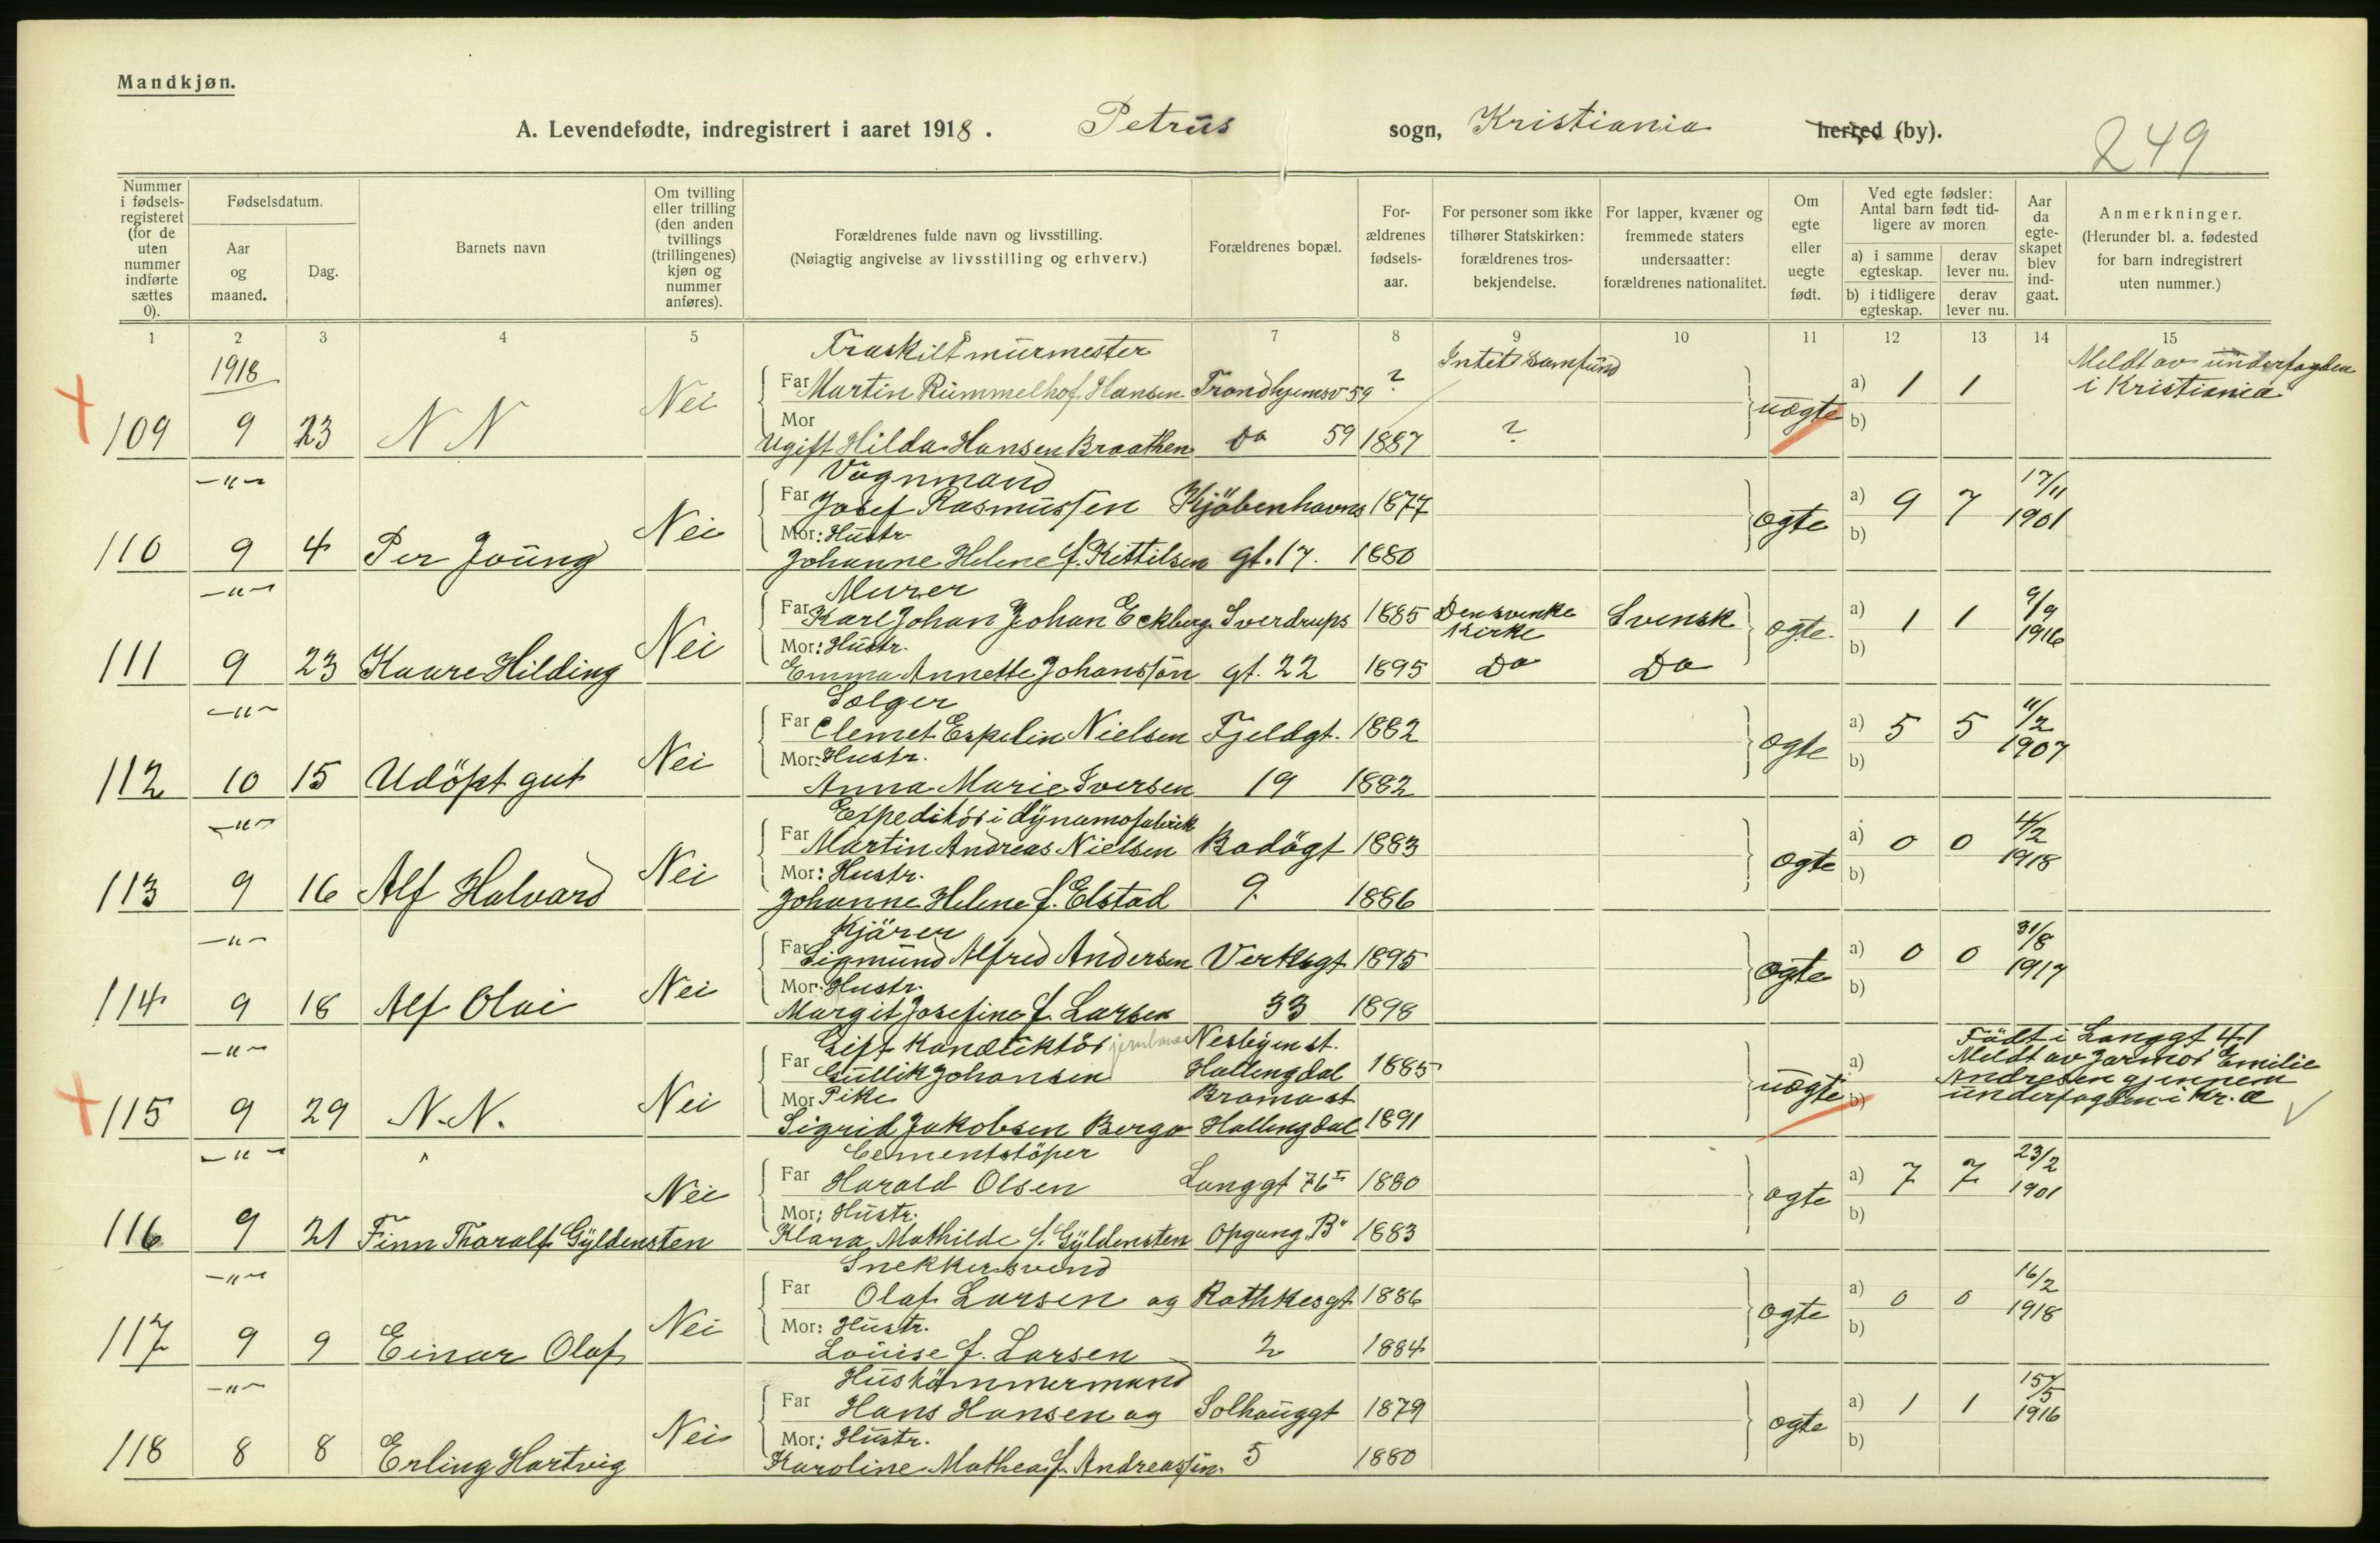 Mandkjøn.
A. Levendefødte, indregistrert i aaret 1918. Petrus sogn, Kristiania herred (by). 249
Nummer i fødsels-registeret (for de uten nummer indførte sættes 0).
Fødselsdatum.
Aar og maaned.
Dag.
Barnets navn
Om tvilling eller trilling (den anden tvillings (trillingenes) kjøn og nummer anføres).
Forældrenes fulde navn og livsstilling.
(Nøiagtig angivelse av livsstilling og erhverv.)
Forældrenes bopæl.
For-ældrenes fødsels-aar.
For personer som ikke tilhører Statskirken: forældrenes tros-bekjendelse.
For lapper, kvæner og fremmede staters undersaatter: forældrenes nationalitet.
Om egte eller uegte født.
Ved egte fødsler: Antal barn født tid-ligere av moren
a) i samme egteskap.
derav lever nu.
b) i tidligere egteskap.
derav lever nu.
Aar da egte-skapet blev ind-gaat.
Anmerkninger.
(Herunder bl. a. fødested for barn indregistrert uten nummer.)
1 2 3 4 5 6 7 8 9 10 11 12 13 14 15
1918 Fraskilt murmester Intet samfund Meldt av underfogden
Far Martin Rummelhof Hansen Trondhjemsv 59 ? a) 1 1 i Kristiania
109 9 23 N N Nei Mor Ugift Hilda Hansen Braathen Do 59 1887 ? uegte b)
-"- Vognmand
Far Josef Rasmussen Kjöbenhavns 1877 a) 9 7 17/11 1901
110 9 4 Per Joung Nei Mor: Hustr. Johanne Helene f. Kittilsen gt. 17. 1880 egte b)
-"- Murer
Far Karl Johan Johan Eckberg Sverdrups 1885 Den svenke Kirke Svensk a) 1 1 9/9 1916
111 9 23 Kaare Hilding Nei Mor: Hustr. Emma Annette Johansson gt. 22 1895 Do Do egte b)
-"- Selger
Far Clemet Espelin Nielsen Fjeldgt. 1882 a) 5 5 11/2 1907
112 10 15 Udöpt gut Nei Mor: Hustr. Anna Marie Iversen 19 1882 egte b)
-"- Expeditör i dynamofabrik
Far Martin Andreas Nielsen Bodögt 1883 a) 0 0 4/2 1918
113 9 16 Alf Halvard Nei Mor: Hustr. Johanne Helene f. Elstad 9. 1886 egte b)
-"- Kjörer
Far Sigmund Alfred Andersen Verksgt 1895 a) 0 0 31/8 1917
114 9 18 Alf Olai Nei Mor: Hustr. Margit Josefine f. Larsen 33 1898 egte b)
-"- Gift Konduktör Nesbyen st. Födt i Langgt 41
Far Gullik Johansen Hallingdal 1885 a) Meldt av Jormor Emilie
Mor Pike Bromo st Andresen gjennem
115 9 29 N. N. Nei Sigrid Jakobsen Berga Hallingdal 1891 uegte b) underfogden i Kr. a
-"- Cementstöper
Far Harald Olsen Langgt 76 I 1880 a) 7 7 23/2 1901
116 9 21 Finn Tharalf Gyldensten Nei Mor: Hustr. Klara Mathilde f. Gyldensten Opgang "B" 1883 egte b)
-"- Snekkersvend
Far Olaf Larsen og Rathkesgt 1886 a) 0 0 16/2 1918
117 9 9 Einar Olaf Nei Mor: Hustr. Louise f. Larsen 2 1884 egte b)
-"- Hustömmermand
Far Hans Hansen og Solhauggt 1879 a) 1 1 15/5 1916
118 8 8 Erling Hartvig Nei Mor: Hustr. Karoline Mathea f. Andreassen. 5 1880 egte b)